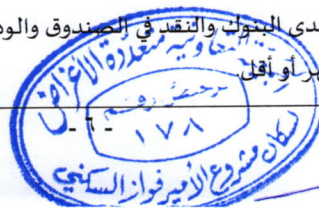 لدى البنوك والنقد في الصندوق والود
هر أو أقل.
- ٦ -
التعاونية متعددة الأغراض
ترخيص رقم
١٧٨
لسكان مشروع الأمير فواز السكني